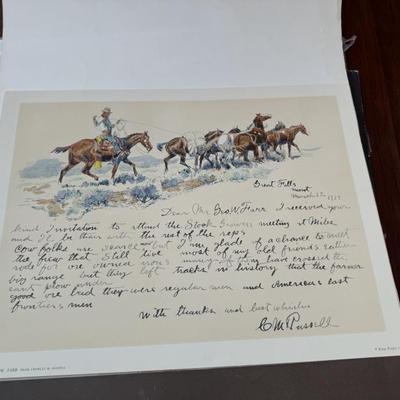 Great Falls
Mont
March 1919
Dear Mr Geo W Farr I received your
kind Invitation to attend the Stock Growers meeting at Miles
and I'l be thair with the rest of the reps
Cow folks are scarce now but I'm glade of a chance to meet
the fiew that still live most of my old friends eather
rode for ore owned irons many of they have crossed the
big range but they left tracks in history that the farmer
cant plow under
good ore bad they were regular men and Americas last
frontiers men
With thanks and best whishes
C M Russell
FARR FROM CHARLES M. RUSSELL